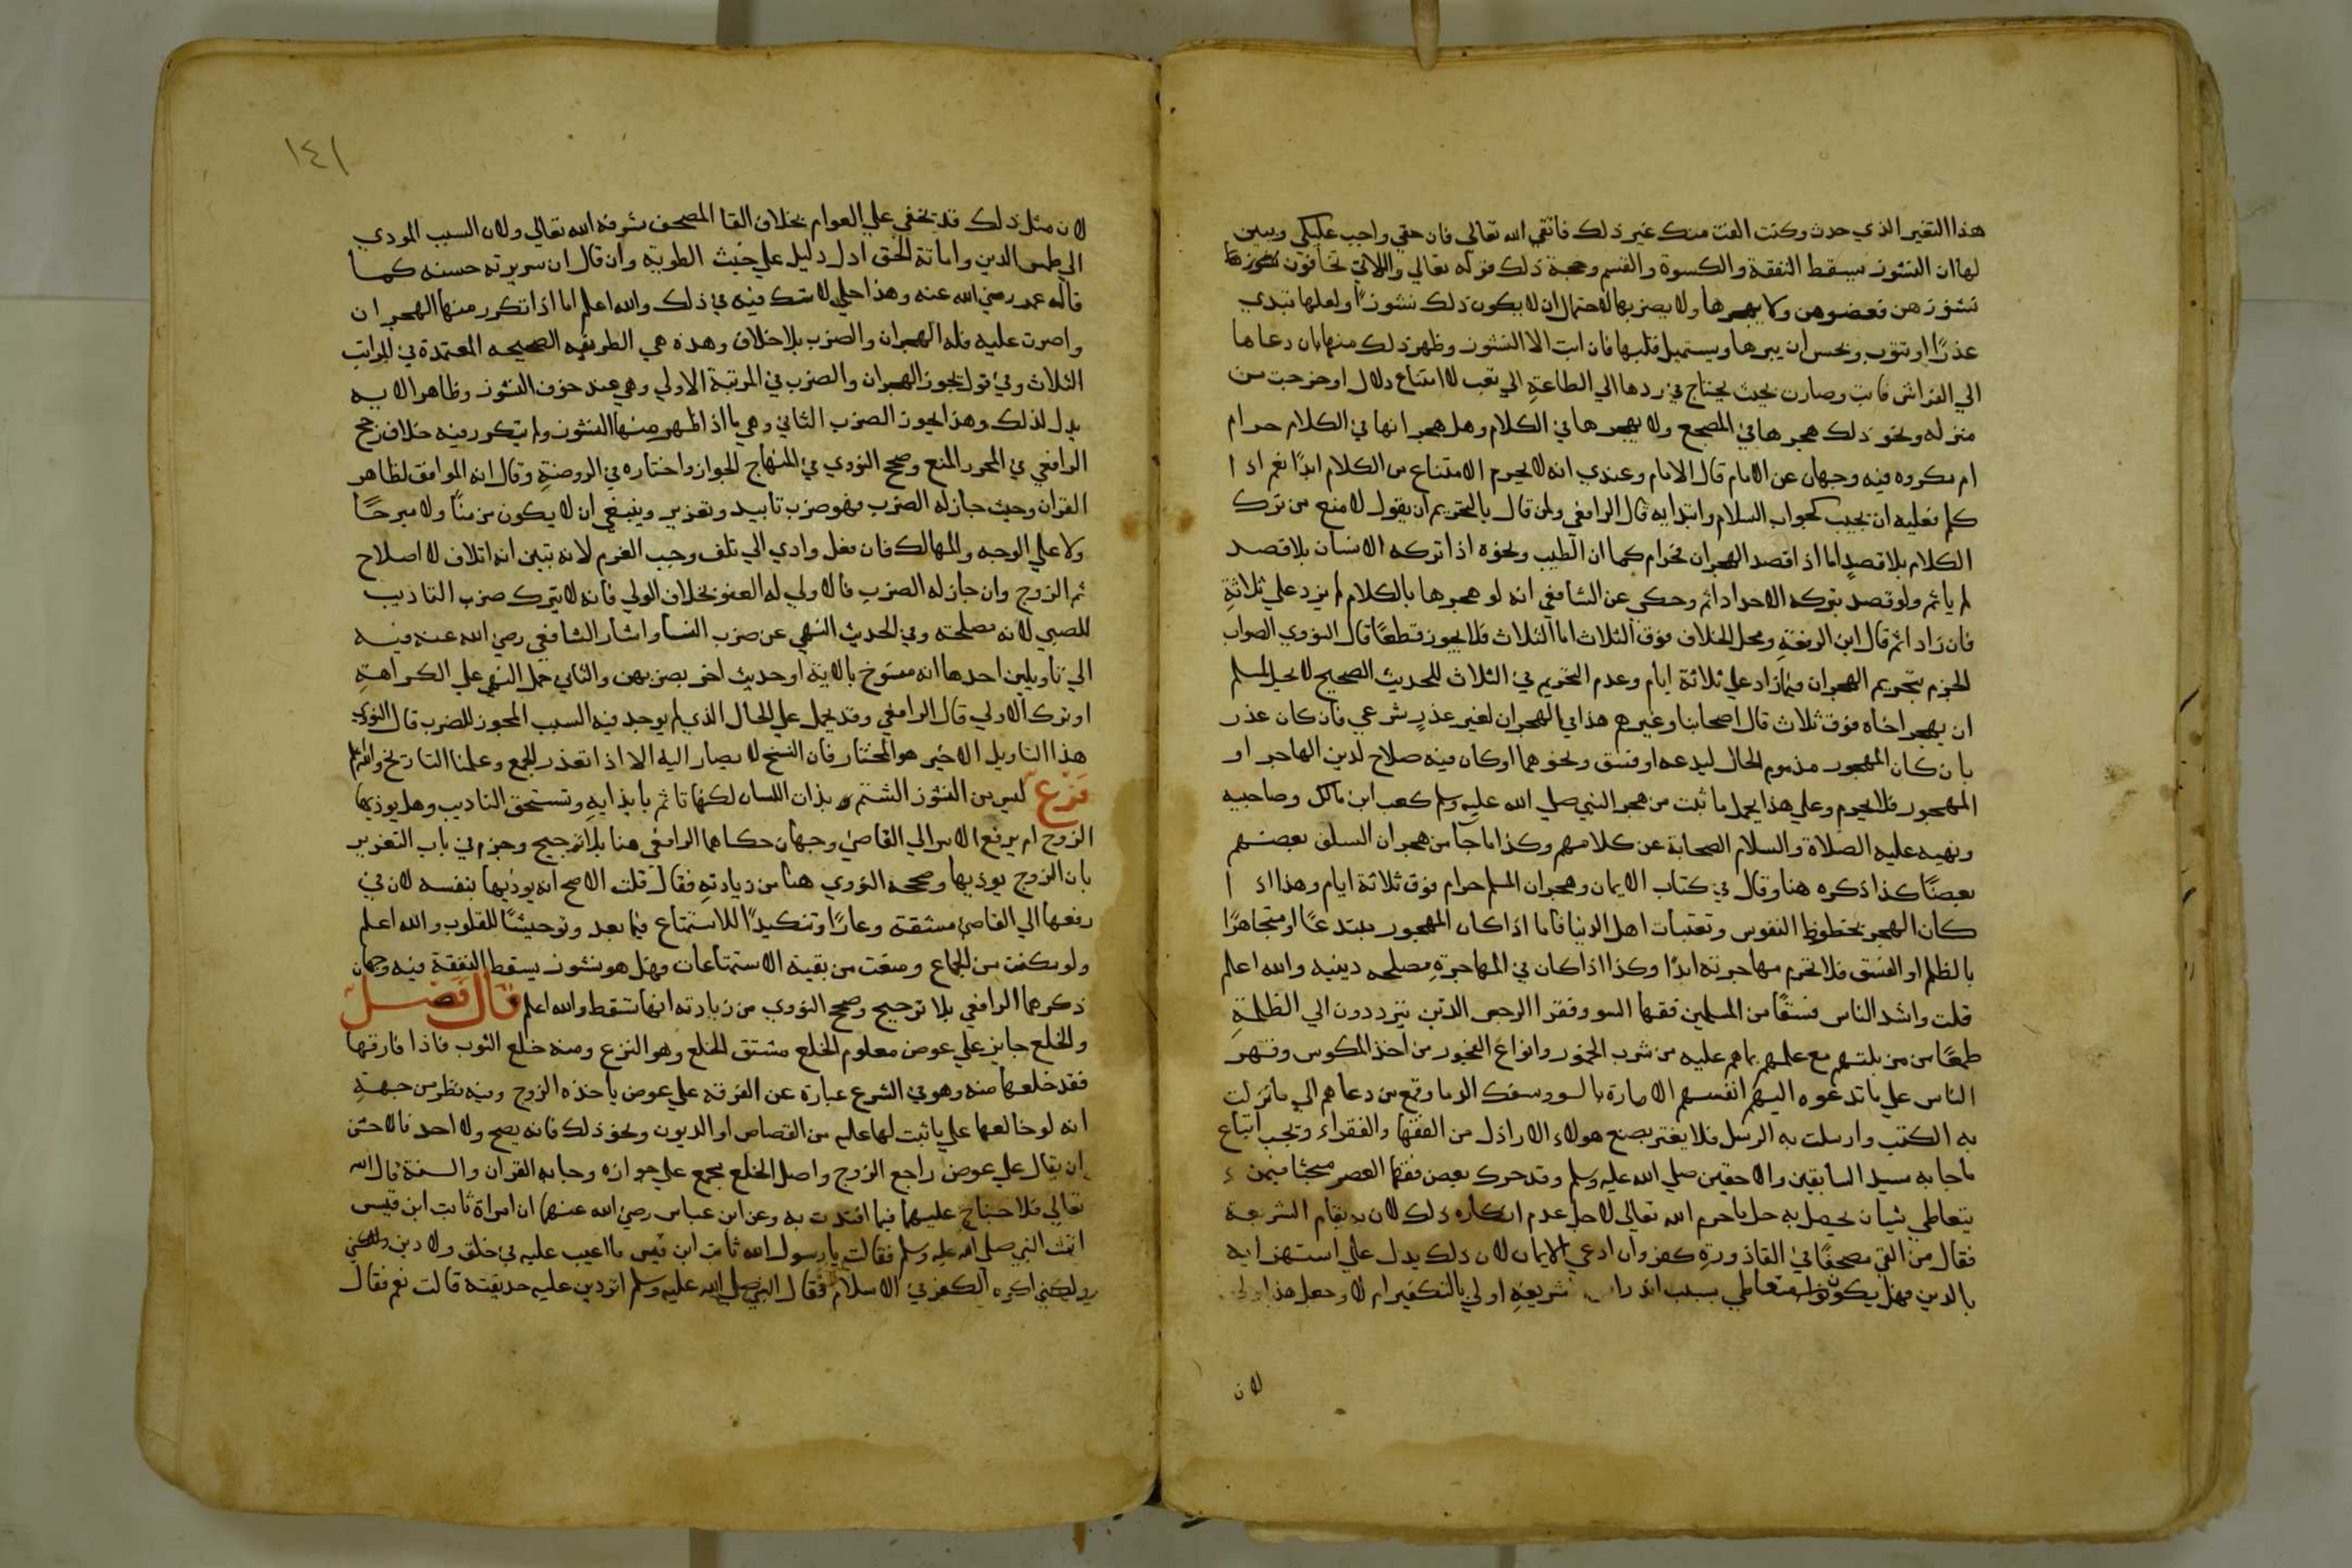 هذا التغير الذي حدث وكنت الفت منك غير ذلك فاتقي الله تعالى فان حقي واجب عليكي ويبين
لها ان النشوز يسقط النفقة والكسوة والقسم وحجة ذلك قوله تعالي واللاتي تخافون
نشوزهن فعضوهن ولا يهجرها ولا يضربها لاحتمال ان لا يكون ذلك نشوزًا ولعلها تبدي
عذرًا او تتوب ويحسن ان يبرها ويستميل قلبها فان ابت الا النشوز وظهر ذلك منها بان دعاها
الي الفراش فابت وصارت بحيث يحتاج في ردها الي الطاعة الي تعب لا امتناع دلال او خرجت من
منزله ونحو ذلك هجرها في المضجع ولا يهجرها في الكلام وهل هجرانها في الكلام حرام
ام مكروه فيه وجهان عن الامام قال الامام وعندي انه لا يحرم الامتناع من الكلام ابدًا نعم اذا
كلم فعليه ان يجيب كجواب السلام وابتدايه قال الرافعي ولمن قال بالتحريم ان يقول لا منع من ترك
الكلام بلا قصدٍ اما اذا قصد الهجران فحرام كما ان الطيب ونحوه اذا تركه الانسان بلا قصد
لم ياثم ولو قصد بتركه الاحداد اثم وحكي عن الشافعي انه لو هجرها بالكلام لم يزد علي ثلاثةِ
فان زاد اثم قال ابن الرفعةِ ومحل الخلاف فوق الثلاث اما الثلاث فلا يجوز قطعًا قال النووي الصواب
الجزم بتحريم الهجران فيما زاد علي ثلاثة ايام وعدم التحريم في الثلاث للحديث الصحيح لا يحل لمسلم
ان يهجر اخاه فوق ثلاث قال اصحابنا وغيرهم هذا في الهجران لغير عذرٍ شرعي فان كان عذر
بان كان المهجور مذموم الحال لبدعه او فسق ونحوهما او كان فيه صلاح لدين الهاجر او
المهجور فلا يحرم وعلي هذا يحمل ما ثبت من هجر النبي صلي الله عليه وسلم كعب ابن مالك وصاحبيه
ونهيه عليه الصلاة والسلام الصحابة عن كلامهم وكذا ما جآ من هجران السلف بعضهم
بعضًا كذا ذكره هنا وقال في كتاب الايمان وهجران المسلم حرام فوق ثلاثة ايام وهذا اذا
كان الهجر لحظوظ النفوس وتعتبات اهل الدنيا فاما اذا كان المهجور مبتدعًا او متجاهرًا
بالظلم او الفسق فلا تحرم مهاجرته ابدًا وكذا اذا كان في المهاجرةِ مصلحه دينيه والله اعلم
قلت واشد الناس فسقًا من المسلمين فقها السو وفقرا الرجس الذين يترددون الي الظلمةِ
طمعًا من مزبلتهم مع علمهم بما هم عليه من شرب الخمور وانواع الفجور من اخذ المكوس وقهر
الناس علي ما تدعوه اليهم انفسهم الامارة بالسو وسفك الدما وقمع من دعاهم الي ما نزلت
به الكتب وارسلت به الرسل فلا يغتر بصنع هولاء الاراذل من الفقها والفقراء وتجب اتباع
ما جا به سيد السابقين والاحقين صلي الله عليه وسلم وقد حرك بعض فقها العصر مبحثا فيمن
يتعاطي شيا يحصل به حل ما حرم الله تعالى لاجل عدم انكاره ذلك لان به تقام الشريعة
فقال من القي مصحفًا في القاذورةِ كفر وان ادعي الايمان لان ذلك يدل علي استهزايه
بالدين فهل يكون متعاطي سبب شريعةِ اولي بالتكفير ام لا وجعل هذا اولي
لان
١٤١
لان مثل ذلك قد يخفي علي العوام بخلاف القا المصحف شرفه الله تعالي ولان السبب المودي
الي طمس الدين واماتة الحق ادل دليل علي خبث الطوية وان قال ان سريرته حسنه كما
قاله عمر رضي الله عنه وهذا جلي لا شك فيه في ذلك والله اعلم اما اذا تكرر منها الهجران
واصرت عليه فله الهجران والضرب بلا خلاف وهذه هي الطريقه الصحيحه المعتمدة في المراتب
الثلاث وفي قول يجوز الهجران والضرب في المرتبة الاولي وهي عند خوف النشوز وظاهر الايه
يدل لذلك وهذا يجوز الضرب الثاني وهي ما اذا ظهر منها النشوز ولم يتكرر فيه خلاف رجح
الرافعي في المحرر المنع وصحح النووي في المنهاج الجواز واختاره في الروضةِ وقال انه الموافق لظاهر
القران وحيث جاز له الضرب فهو ضرب تاديب وتعزير وينبغي ان لا يكون مزمنًا ولا مبرحًا
ولا علي الوجه والمهالك فان فعل وادي الي تلف وجب الغرم لانه تبين انه اتلاف لا اصلاح
ثم الزوج وان جاز له الضرب فالاولي له العفو بخلاف الولي فانه لا يترك ضرب التاديب
للصبي لانه مصلحته وفي الحديث النهي عن ضرب النسا واشار الشافعي رضي الله عنه فيه
الي تاويلين احدها انه منسوخ بالاية او حديث اخر بضربهن والثاني حمل النهي علي الكراهةِ
او ترك الاولي قال الرافعي وقد يحمل علي الحال الذي لم يوجد فيه السبب المجوز للضرب قال النووي
هذا التاويل الاخير هو المختار فان النسخ لا يصار اليه الا اذا تعذر الجمع وعلمنا التاريخ والله اعلم
فرع ليس من النشوز الشتم وبذات اللسان لكنها تاثم بايذايهِ وتستحق التاديب وهل يوذيها
الزوج ام يرفع الامر الي القاضي وجهان حكاهما الرافعي هنا بلا ترجيح وجزم في باب التعزير
بان الزوج يوذيها وصححه النووي هنا من زيادتهِ فقال قلت الاصح انه يوذيها بنفسه لان في
رفعها الي القاضي مشقة وعارًا وتنكيدًا للاستمتاع فيما بعد وتوحيشًا للقلوب والله اعلم
ولو مكنت من الجماع ومنعت من بقية الاستمتاعات فهل هو نشوز يسقط النفقة فيه وجهان
ذكرهما الرافعي بلا ترجيح وصحح النووي من زيادته انها تسقط والله اعلم قال فصل
والخلع جايز علي عوض معلوم الخلع مشتق الخلع وهو النزع ومنه خلع الثوب فاذا فارقها
فقد خلعها منه وهو في الشرع عبارة عن الفرقه علي عوض ياخذه الزوج وفيه نظر من جهةِ
انه لو خالعها علي ما ثبت لها عليه من القصاص او الديون ونحو ذلك فانه يصح ولا احد فالاحسن
ان يقال علي عوض راجع الزوج واصل الخلع مجمع علي جوازه وجا به القران والسنة قال الله
تعالي فلا جناح عليهما فيما افتدت به وعن ابن عباس رضي الله عنهما ان امراة ثابت ابن قيس
اتت النبي صلي الله عليه وسلم فقالت يارسول الله ثابت ابن قيس ما اعيب عليه في خلق ولا دين
ولكني اكره الكفر في الاسلام فقال النبي صلي الله عليه وسلم اتردين عليه حديقته قالت نعم فقال